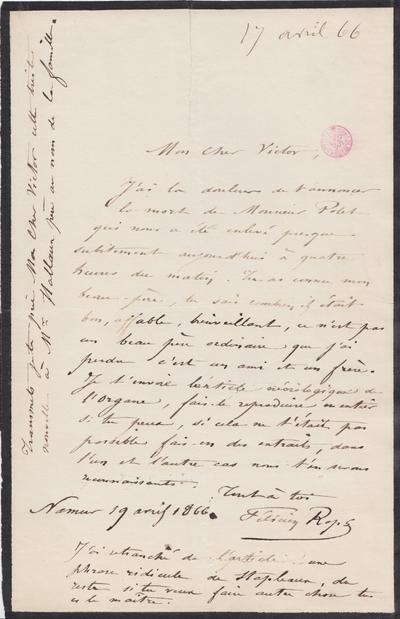 17 avril 66
Mon Cher Victor,
J'ai la douleur de t'annoncer
la mort de Monsieur Polet
qui nous a été enlevé presque
subitement aujourd'hui à quatre
heures du matin. Tu as connu mon
beau-père, tu sais combien il était
bon, affable, bienveillant, ce n'est pas
un beau père ordinaire que j'ai
perdu c'est un ami et un frère.
Je t'envoie l'article nécrologique de
l'Organe, fais-le reproduire en entier
si tu peux, si cela ne t'était pas
possible fais-en des extraits, dans
l'un et l'autre cas nous t'en serons
reconnaissants.
Tout à toi
Namur 19 avril 1866 Félicien Rops
J'ai retranché de l'article une
phrase ridicule de Stapleaux, du
reste si tu veux faire autre chose tu
es le maître.
Transmets je te prie Mon Cher Victor cette triste
nouvelle à Mr Hallaux père au nom de la famille.